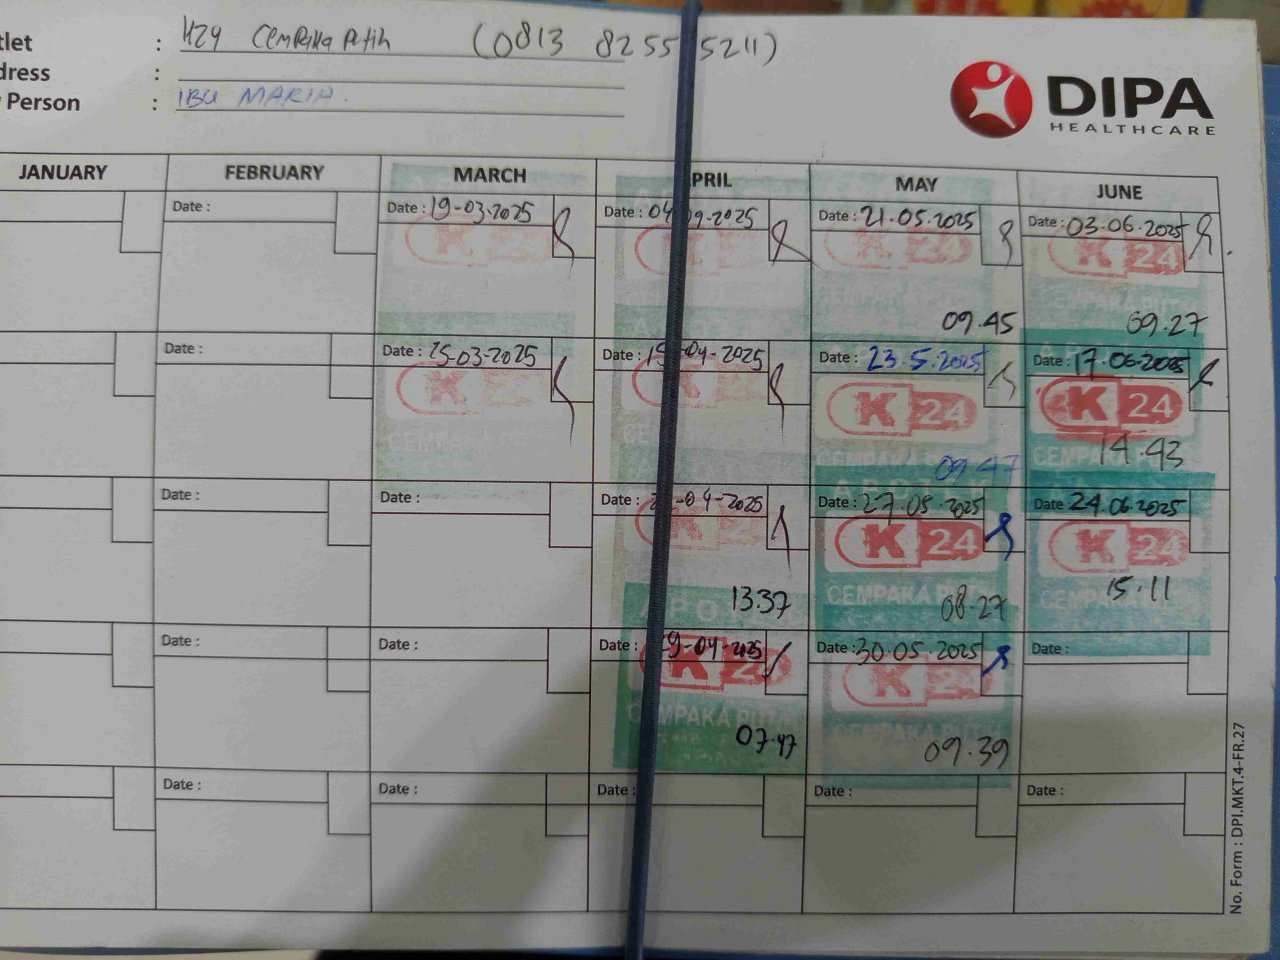 tlet : K24 CEMPAKA PUTIH (0813 8255 5211)
dress :
Person : IBU MARIA.
DIPA
HEALTHCARE
JANUARY FEBRUARY MARCH APRIL MAY JUNE
Date : Date : 19-03-2025 Date : 04 2025 Date : 21.05.2025 Date : 03.06.2025
K 24 K 24
CEMPAKA PUTIH
09.45 09.27
Date : Date : 25-03-2025 Date : 15-04-2025 Date : 23.5.2025 Date : 17.06.2025
K K K 24 K 24
CEMPAKA CEMPAKA CEMPAKA
09.47 14.43
Date : Date : Date : -04-2025 Date : 27.05.2025 Date : 24.06.2025
K 24 K 24
CEMPAKA CEMPAKA
APO 13.37 08.27 15.11
Date : Date : Date : 29-04-2025 Date : 30.05.2025 Date :
K 2 K 24
CEMPAKA PUTIH
07.47 09.39
Date : Date : Date : Date : Date :
No. Form : DPI.MKT.4-FR.27